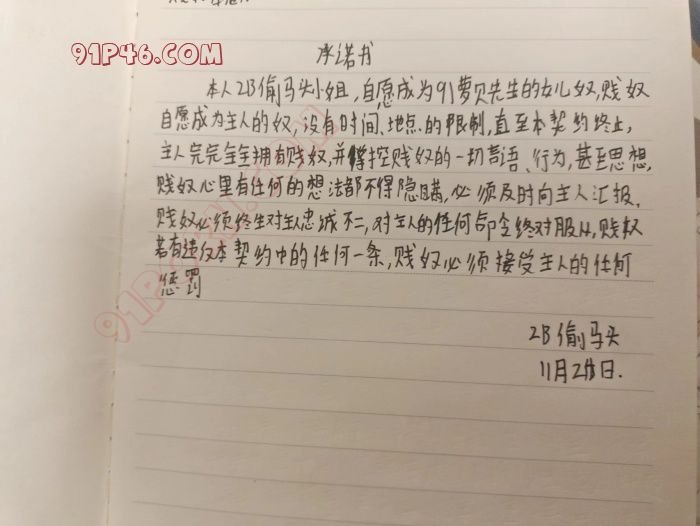 91P46.COM
承诺书
本人2B偷马头小姐,自愿成为91萝贝先生的女儿奴,贱奴
自愿成为主人的奴,没有时间、地点的限制,直至本契约终止,
主人完完全全拥有贱奴,并掌控贱奴的一切言语、行为,甚至思想,
贱奴心里有任何的想法都不得隐瞒,必须及时向主人汇报,
贱奴必须终生对主人忠诚不二,对主人的任何命令终对服从,贱奴
若有违反本契约中的任何一条,贱奴必须接受主人的任何
惩罚
2B偷马头
11月28日.